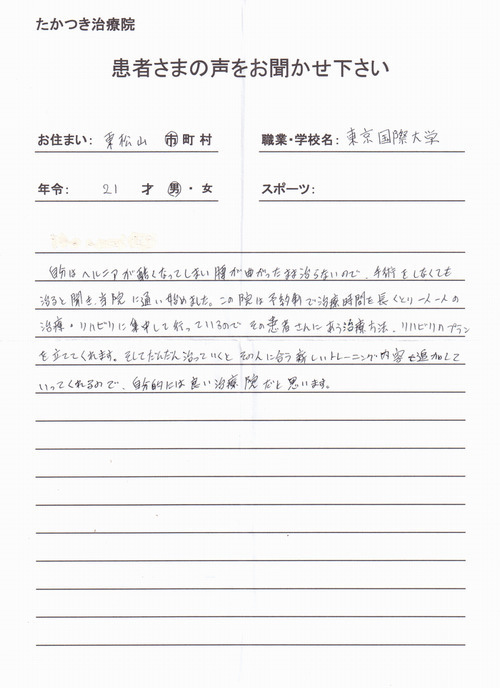 たかつき治療院
患者さまの声をお聞かせ下さい
お住まい: 東松山 市町村
職業・学校名: 東京国際大学
年令: 21 才 男・女
スポーツ:
自分はヘルニアが酷くなってしまい腰が曲がったまま治らないので、手術をしなくても
治ると聞き、当院に通い始めました。この院は予約制で治療時間を長くとり一人一人の
治療・リハビリに集中して行っているので その患者さんにあう治療方法、リハビリのプラン
を立ててくれます。そしてだんだん治っていくと その人に合う新しいトレーニング内容も追加して
いってくれるので、自分的には良い治療院だと思います。